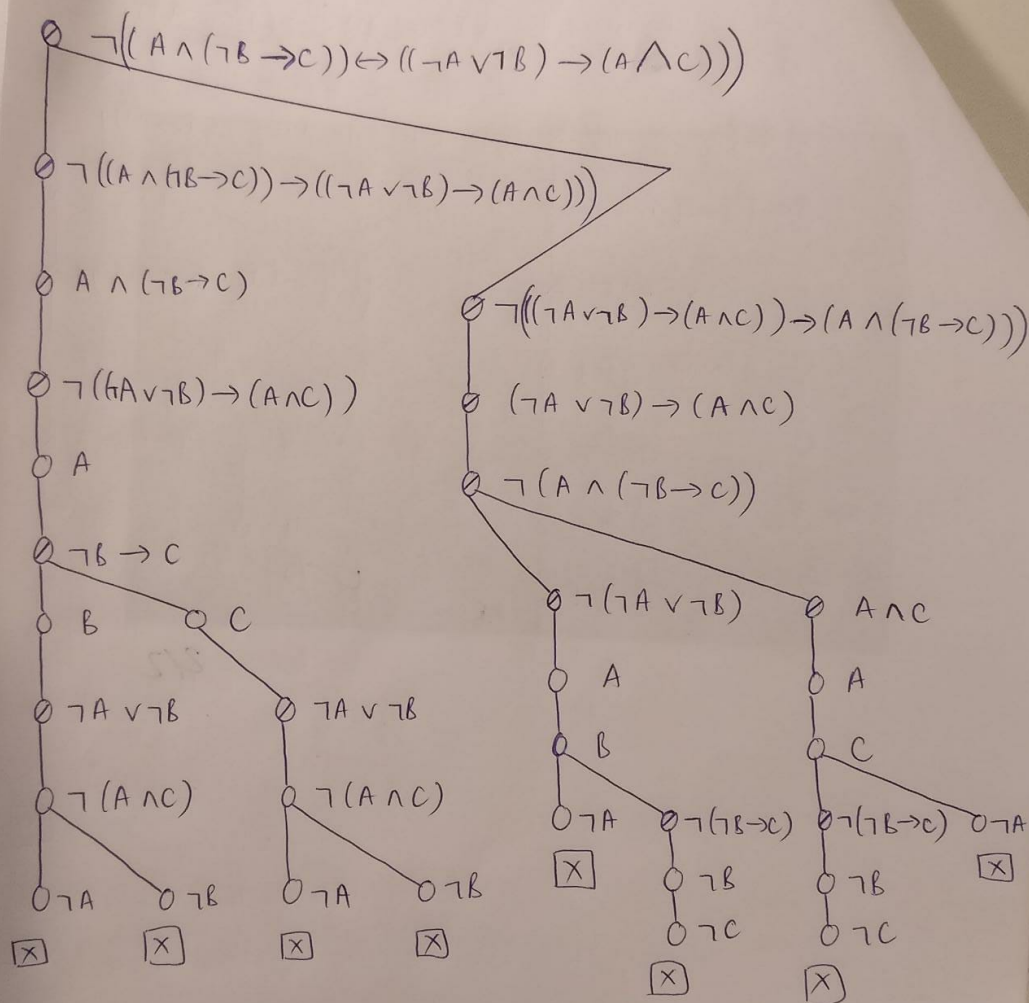 ¬((A∧(¬B→C))↔((¬A∨¬B)→(A∧C)))
¬((A∧(¬B→C))→((¬A∨¬B)→(A∧C)))
A∧(¬B→C)
¬((¬A∨¬B)→(A∧C))
A
¬B→C
B
C
¬A∨¬B
¬A∨¬B
¬(A∧C)
¬(A∧C)
¬A
¬B
¬A
¬B
X
X
X
X
¬(((¬A∨¬B)→(A∧C))→(A∧(¬B→C)))
(¬A∨¬B)→(A∧C)
¬(A∧(¬B→C))
¬(¬A∨¬B)
A∧C
A
A
B
C
¬A
¬(¬B→C)
¬(¬B→C)
¬A
X
X
¬B
¬B
¬C
¬C
X
X